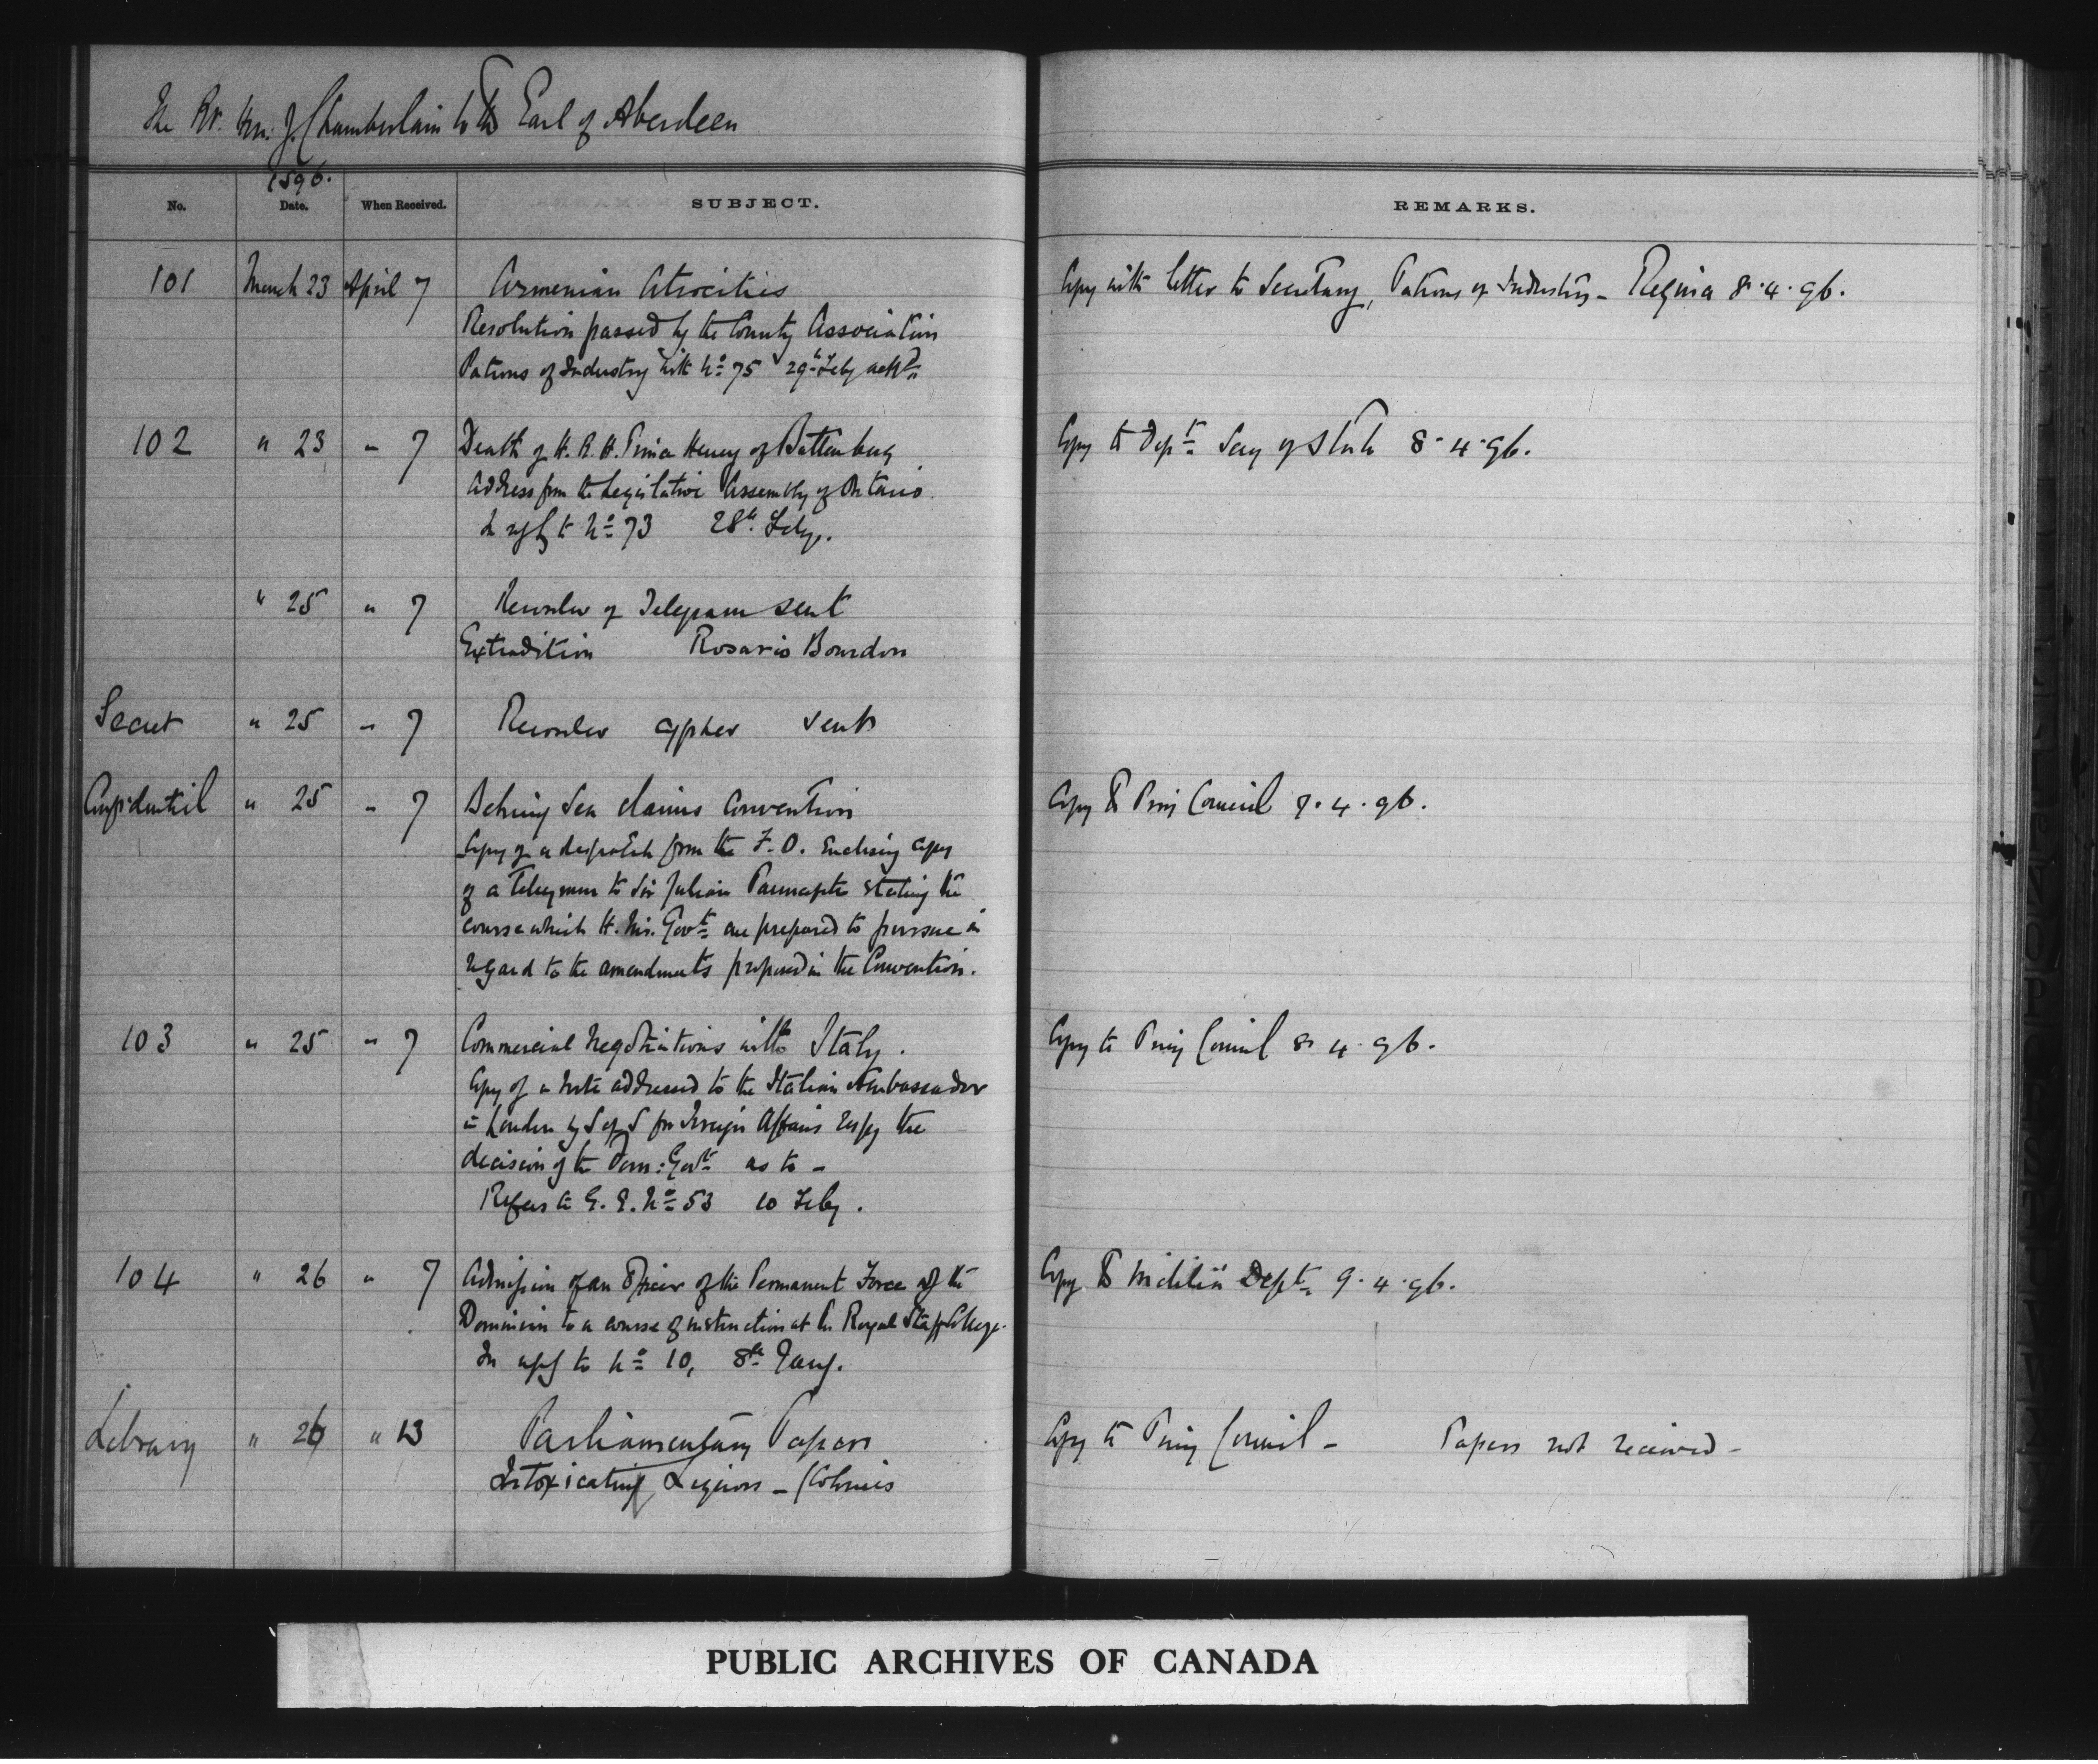 The Rt. Hon. J. Chamberlain to the Earl of Aberdeen
1896.
No. Date. When Received. SUBJECT. REMARKS.
101 March 23 April 7 Armenian Atrocities Copy with letter to Secretary, Patrons of Industry - Regina 8.4.96.
Resolution passed by the County Association
Patrons of Industry with No 75 29th Feby
102 " 23 " 7 Death of H.R.H. Prince Henry of Battenberg Copy to Dept Secy of State 8.4.96.
Address from the Legislative Assembly of Ontario.
In reply to No 73 28th Feby.
" 25 " 7 Recorder of Telegram sent
Extradition Rosario Bourdon
Secret " 25 " 7 Recorder cypher sent
Confidential " 25 " 7 Behring Sea Claims Convention Copy to Privy Council 7.4.96.
Copy of a despatch from the F.O. Enclosing copy
of a Telegram to Sir Julian Pauncefote stating the
course which H. Ms. Govt are prepared to pursue in
regard to the amendments proposed in the Convention.
103 " 25 " 7 Commercial Negotiations with Italy. Copy to Privy Council 8.4.96.
Copy of a note addressed to the Italian Ambassador
in London by S of S for Foreign Affairs respg the
decision of the Dom: Govt as to -
Refers to G. G. No 53 10 Feby.
104 " 26 " 7 Admission of an Officer of the Permanent Force of the Copy to Militia Dept 9.4.96.
Dominion to a course of instruction at the Royal Staff College.
In reply to No 10, 8th Jany.
Library " 26 " 13 Parliamentary Papers Copy to Privy Council - Papers not received -
Intoxicating Liquors - (Colonies
PUBLIC ARCHIVES OF CANADA